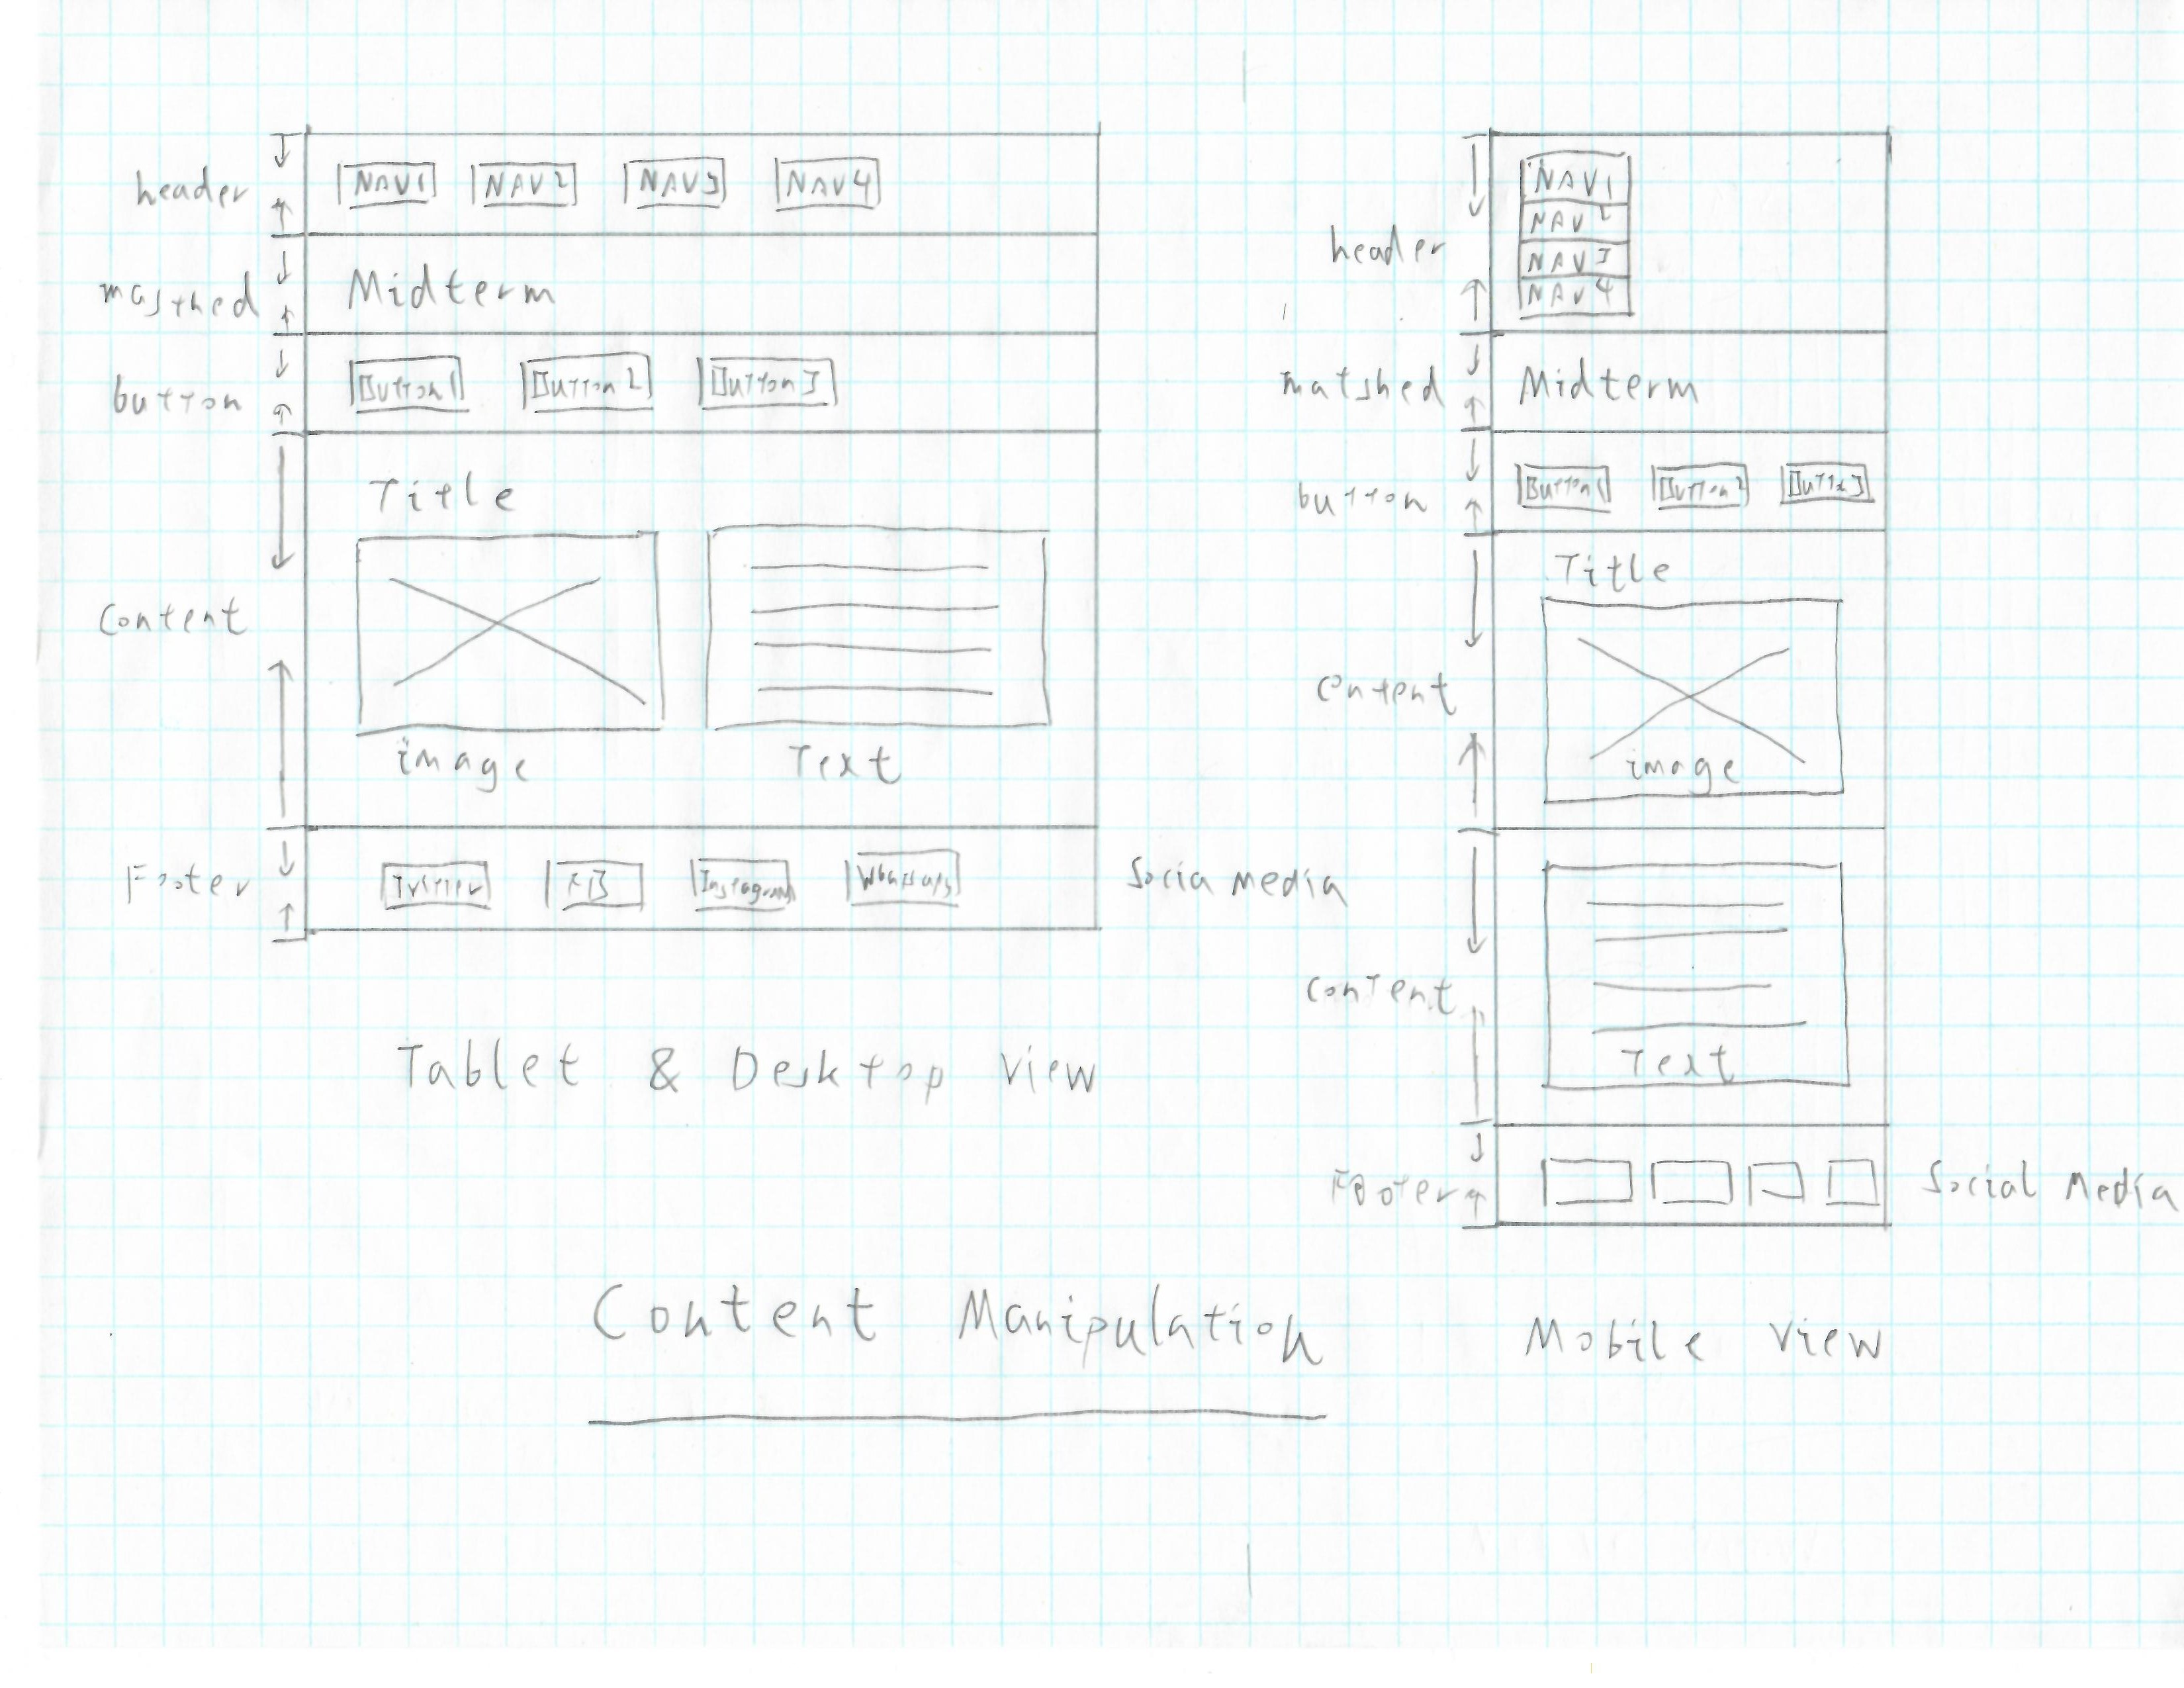 header
NAV1 NAV2 NAV3 NAV4
masthed
Midterm
button
Button1 Button2 Button3
Title
Content
image
Text
Footer
Twitter FB Instagram
Socia media
Tablet & Desktop view
header
NAV1
NAV2
NAV3
NAV4
matshed
Midterm
button
Button1 Button2
Title
content
image
content
Text
Footer
Social media
Mobile view
Content Manipulation